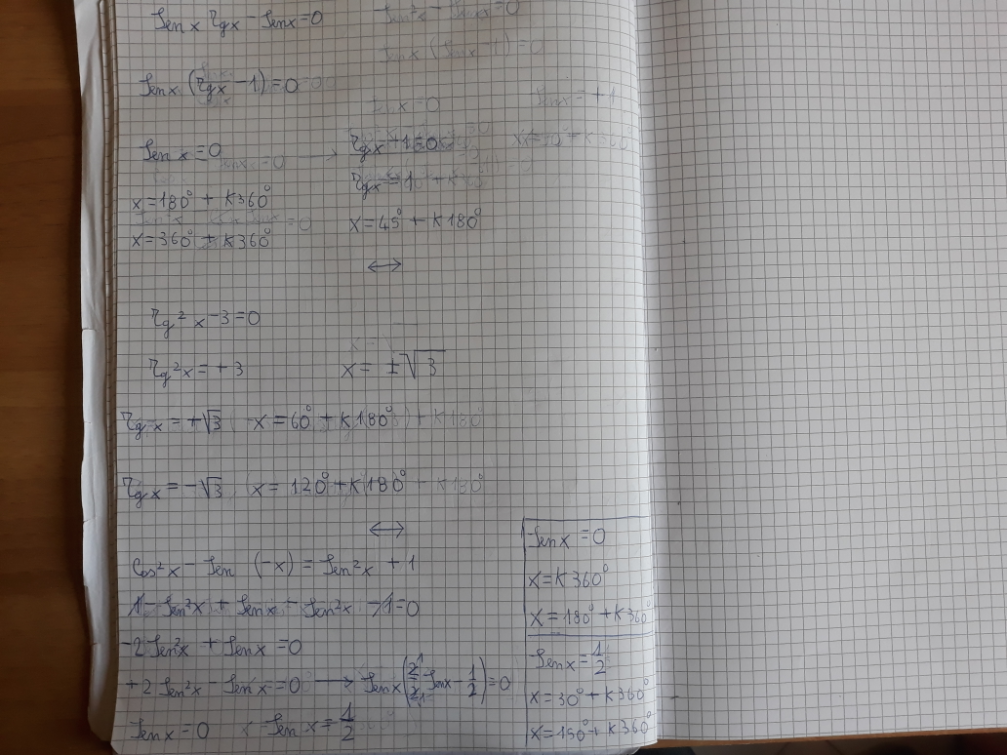 Sen x Tgx - Sen x = 0
Sen x (Tgx - 1) = 0
Sen x = 0 → Tgx + 1 = 0
Tgx = 1
x = 180° + K360°
x = 45° + K180°
x = 360° + K360°
↔
Tg² x - 3 = 0
Tg²x = + 3 x = ±√3
Tg x = +√3 x = 60° + K180°
Tg x = -√3 x = 120° + K180°
↔
Cos²x - Sen (-x) = Sen²x + 1
1 - Sen²x + Sen x - Sen²x - 1 = 0
-2 Sen²x + Sen x = 0
+2 Sen²x - Sen x = 0 → Sen x (2/2 Sen x - 1/2) = 0
Sen x = 0 Sen x = 1/2
Sen x = 0
x = K 360°
x = 180° + K 360°
Sen x = 1/2
x = 30° + K 360°
x = 150° + K 360°